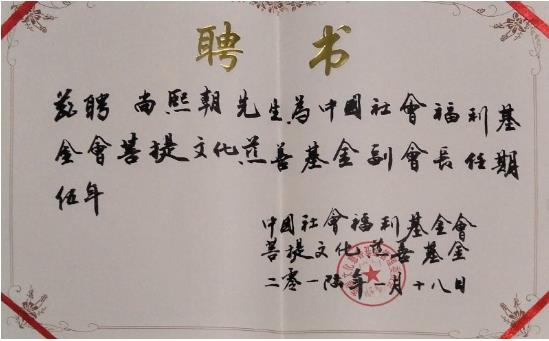 聘书
兹聘 尚熙朝先生為中國社會福利基
金會菩提文化慈善基金副會長任期
伍年
中國社會福利基金會
菩提文化慈善基金
二零一陆年一月十八日